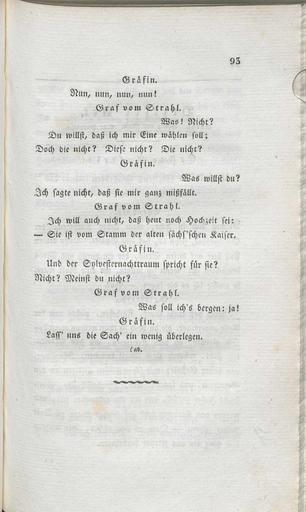 93
Gräfin.
Nun, nun, nun, nun!
Graf vom Strahl.
Was! Nicht?
Du willst, daß ich mir Eine wählen soll;
Doch die nicht? Diese nicht? Die nicht?
Gräfin.
Was willst du?
Ich sagte nicht, daß sie mir ganz mißfällt.
Graf vom Strahl.
Ich will auch nicht, daß heut noch Hochzeit sei:
— Sie ist vom Stamm der alten sächs'schen Kaiser.
Gräfin.
Und der Sylvesternachttraum spricht für sie?
Nicht? Meinst du nicht?
Graf vom Strahl.
Was soll ich's bergen: ja!
Gräfin.
Lass' uns die Sach' ein wenig überlegen.
(ab.